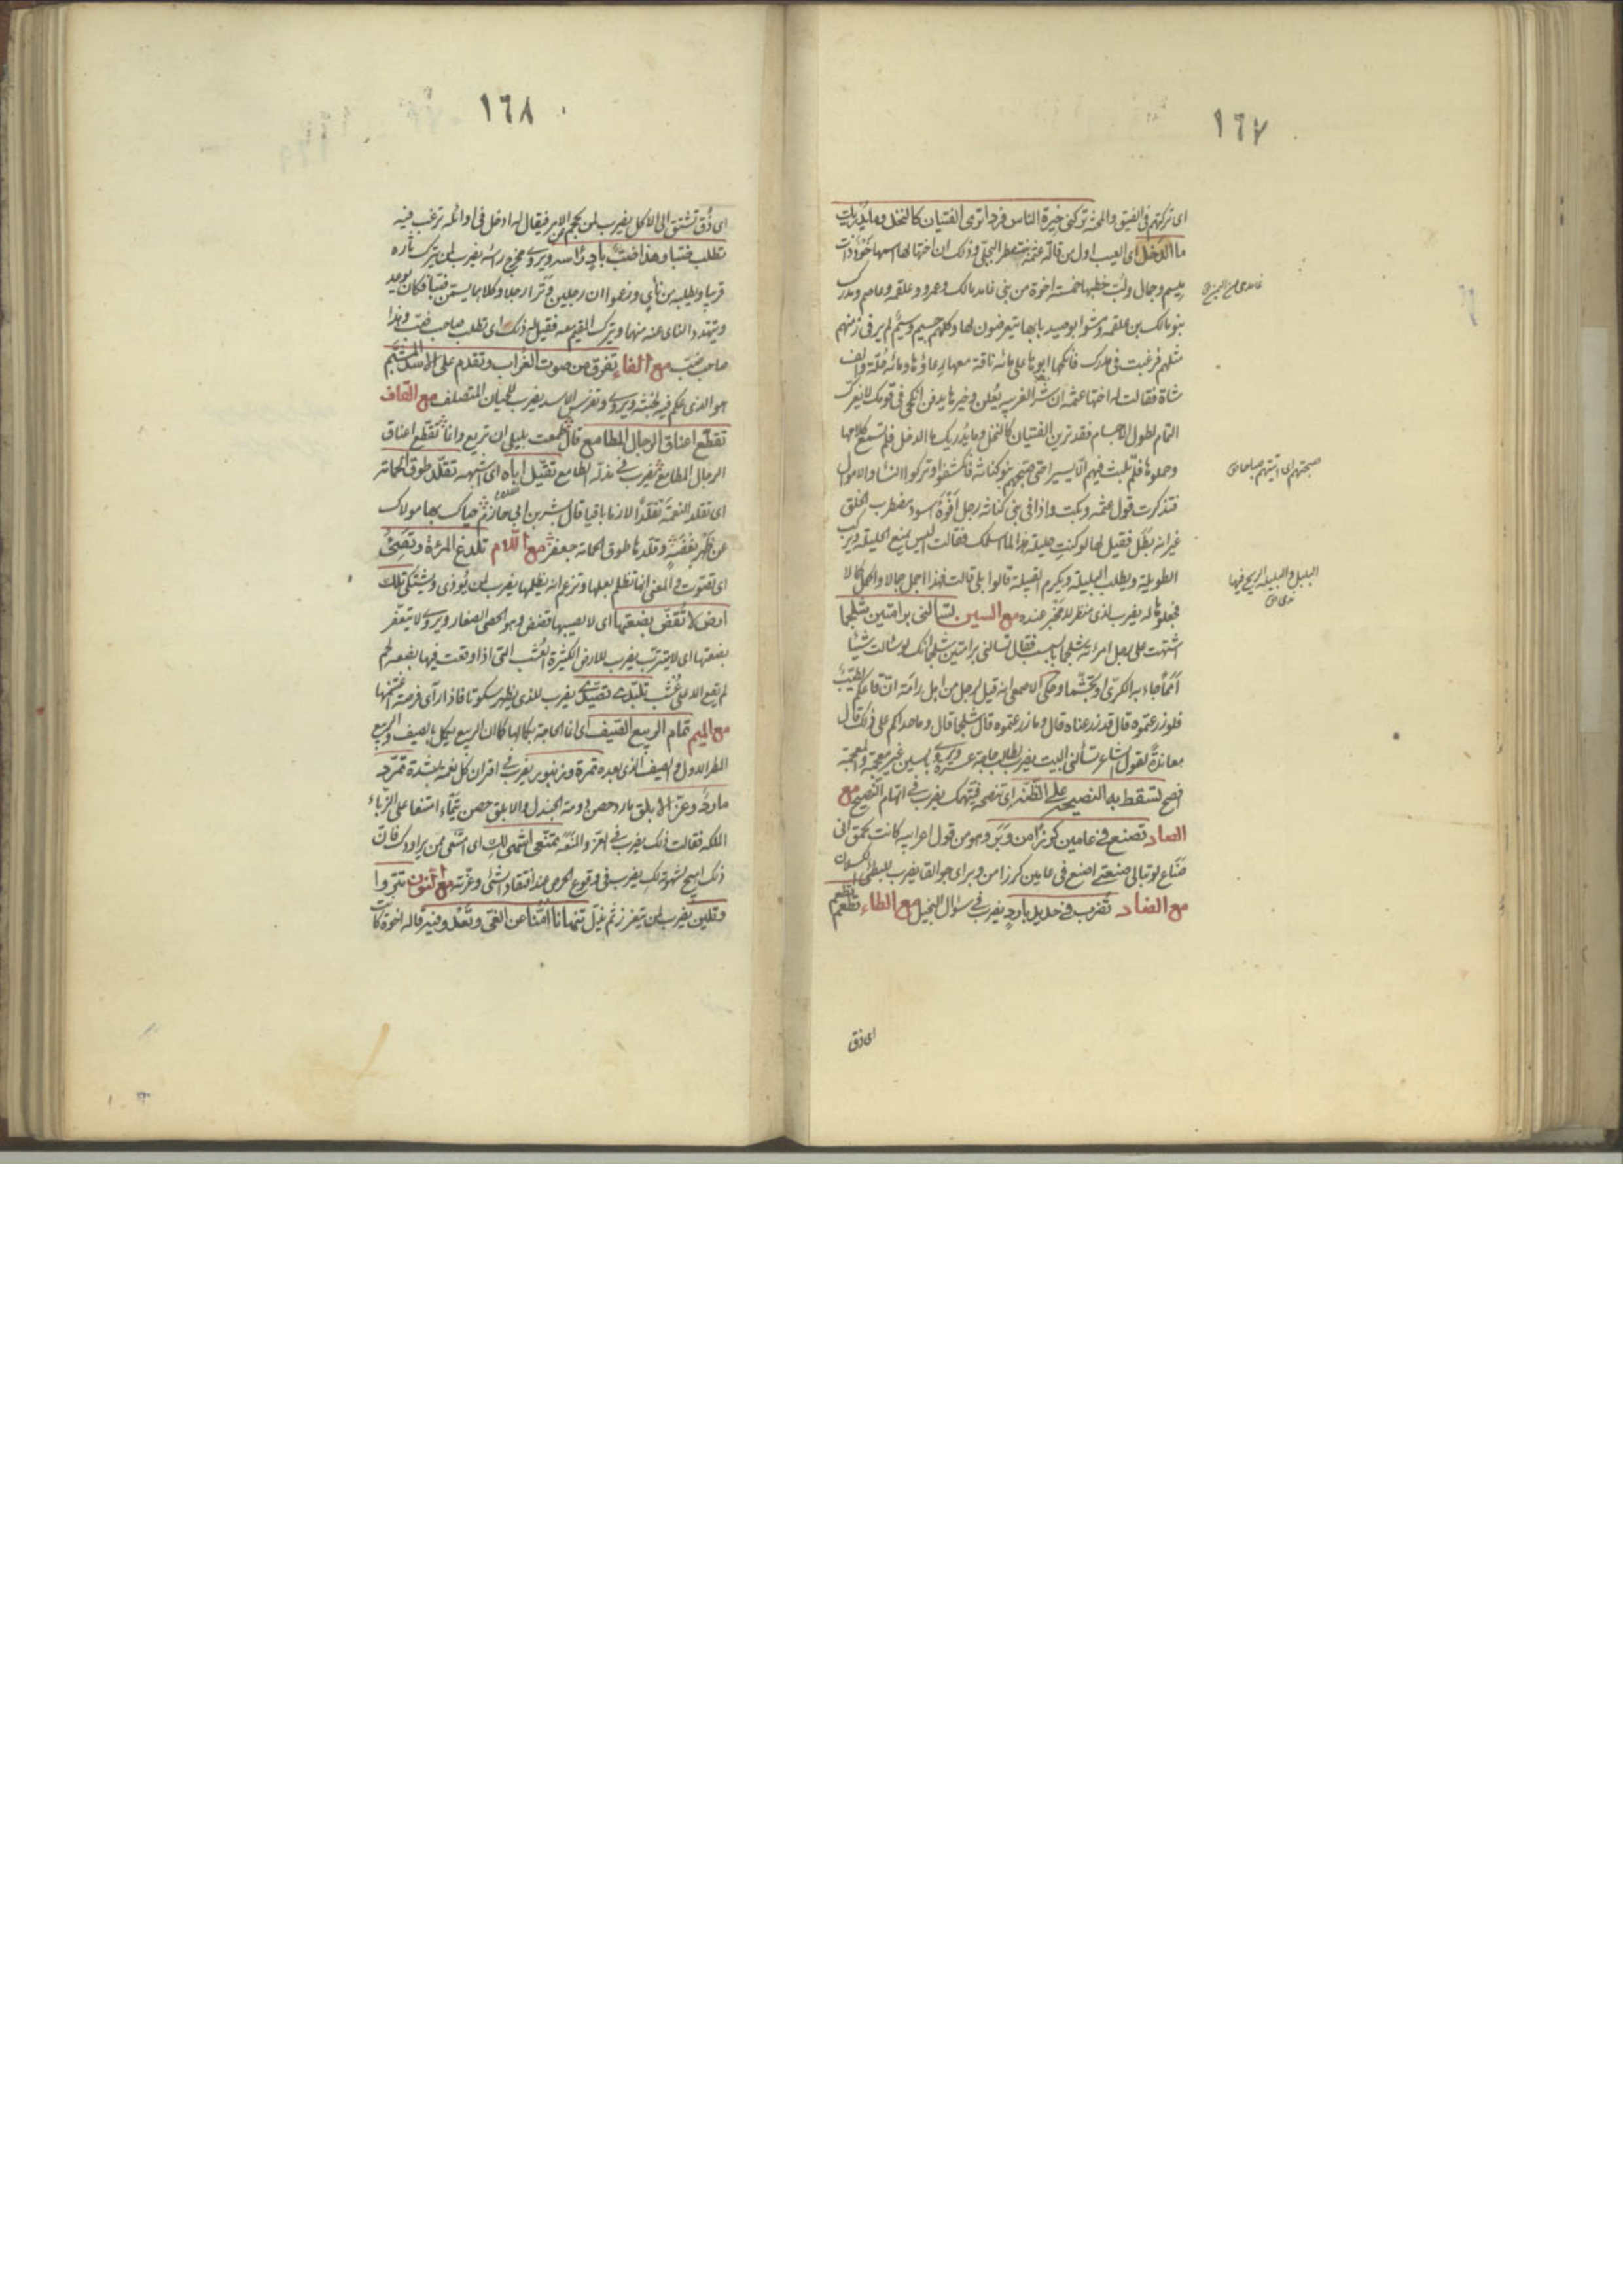 ١٦٧
اى تركتهم فى الضيق والمحنة تركنى خبرة الناس فردا ترى الفتيان كالنخل وما يدريك
ما الدخل اى العيب اول من قاله عثمة بنت مطرود البجلى وذلك ان اختها لها اسمها خود ذات
ميسم وجمال ولب خطبها خمسة اخوة من بنى غامد مالك وعمرو وعلقمة وعاصم ومدرك
بنو مالك بن علقمة ومشوا بوصيد بابها يتعرضون لها وكلهم جسيم وسيم لم ير فى زمنهم
مثلهم فرغبت فى مدرك فانكحها ابوها على مائة ناقة معها رعاؤها ومائة حلة والف
شاة فقالت لها اختها عثمة ان شر الغريبة يعلن وخيرها يدفن انكحى فى قومك لا يغررك
التمام لطول الاجسام فقد ترين الفتيان كالنخل وما يدريك ما الدخل فلم تسمع كلامها
وحملوها فلم تلبث فيهم الا يسيرا حتى صبحهم بنو كنانة فانكشفوا وتركوا النساء والاموال
فتذكرت قول عثمة وبكت واذا فى بنى كنانة رجل افوه اسود مضطرب الخلق
غير انه بطل فقيل لها لو كنت حليلة هذا لما سلمك فقالت اليس يمنع الحليلة ويركب
الطويلة ويطلب البليلة ويكرم القبيلة قالوا بلى قالت فهذا اجمل جمالا واكمل كمالا
فجعلوها له يضرب لذى منظر لا مخبر عنده مع السين تسألنى برامتين شلجما
اشتهت على رجل امرأته شلجما بسبسب فقال تسألنى برامتين شلجما انك لو سألت شيئا
امما جاء به الكرى او تجشما وحكى الاصمعى انه قيل لرجل من اهل رامة ان قاعكم لطيب
فلو زرعتموه قال قد زرعناه قال وما زرعتموه قال شلجما قال وما حداكم على ذلك قال
معاندة لقول الشاعر تسألنى البيت يضرب لطالب حاجة عسرة ويروى بالسين غير معجمة والمعجمة
افصح تسقط به النصيحة على الظنة اى تنصحه فيتهمك يضرب فى اتهام النصيح مع
الصاد تصنع فى عامين كرزا من وبر وهو من قول اعرابية كانت تحمق انى
صناع لو تبالى صنعتى اصنع فى عامين كرزا من وبر اى جوالقا يضرب للبطئ الكسلان
مع الضاد تضرب فى حديد بارد يضرب فى سؤال البخيل مع الطاء تطعم تطعم
اى ذق
صبحتهم اى اتيتهم صباحا
البليل والبليلة الريح فيها
ندى
١٦٨
اى ذق تشتق الى الاكل يضرب لمن يحجم عن الامر فيقال له ادخل فى اوائله ترغب فيه
تطلب ضبا وهذا ضب باد رأسه ويروى مخرج رأسه يضرب لمن يترك ثاره
قريبا ويطلبه من نأى وزعموا ان رجلين وترا رجلا وكلاهما يسمى ضبا فكان يوعد
ويتهدد النائى عنه منهما ويترك المقيم معه فقيل له ذلك اى تطلب صاحب ضب وهذا
صاحب ضب مع الفاء تفرق من صوت الغراب وتقدم على الاسد المشتم
هو الذى عكم فيه لخبثه ويروى وتفرس الاسد يضرب للجبان المتصلف مع القاف
تقطع اعناق الرجال المطامع قال طمعت بليلى ان تريع وانما تقطع اعناق
الرجال المطامع يضرب فى مذلة الطامع تقيل اباه اى اشبهه تقلد طوق الحمامة
اى تقلد النعمة تقلدا لازما باقيا قال بشر بن ابى خازم حباك بها مولاك
عن ظهر بغضة وقلدها طوق الحمامة جعفر مع اللام تلدغ المرأة وتصئ
اى تصوت والمعنى انها تظلم بعلها وتزعم انه يظلمها يضرب لمن يؤذى ويشتكى تلك
ارض لا تقض بضعتها اى لا يصيبها قضض وهو الحصى الصغار ويروى لا يتعفر
بضعتها اى لا يتترب يضرب للارض الكثيرة العشب التى اذا وقعت فيها بضعة لحم
لم تقع الا على عشب تلبدى تصيدى يضرب للذى يظهر سكوتا فاذا رأى فرصة اغتنمها
مع الميم تمام الربيع الصيف اى انما الحاجة بكمالها كما ان الربيع يكمل بالصيف والربيع
المطر الاول والصيف الذى بعده تمرة وزنبور يضرب فى اقتران كل نعمة بشدة تمرد
مارد وعز الابلق مارد حصن دومة الجندل والابلق حصن تيماء امتنعا على الزباء
الملكة فقالت ذلك يضرب فى العز والمنعة تمنعى اشهى لك اى امتنعى ممن يراودك فان
ذلك اهيج لشهوته لك يضرب فى وقوع الحرص عند افتقاد الشئ وعزته مع النون تنزوا
وتلين يضرب لمن يتعزز ثم يذل تنهانا امنا عن الغى وتغدو فيه قاله اخوة كانت